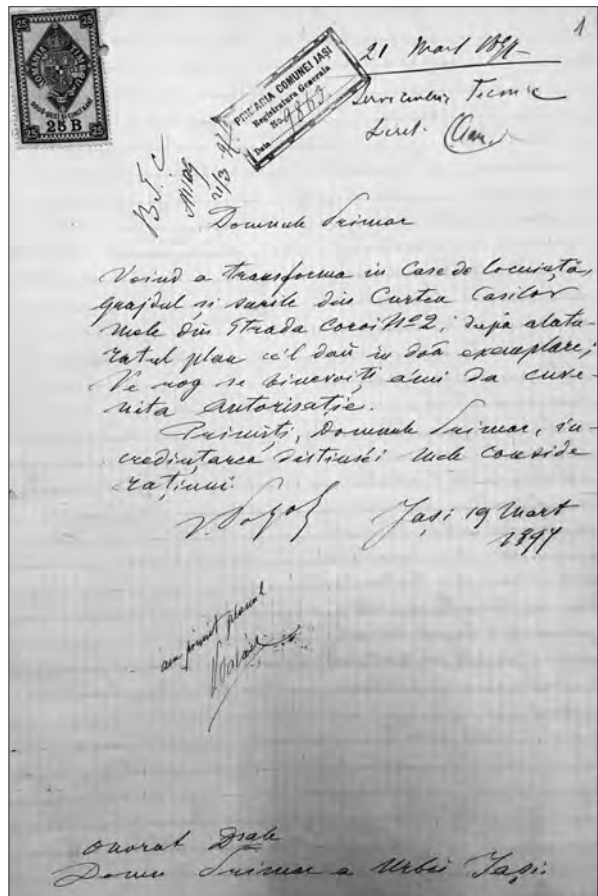 1
25 25
ROMANIA TIMBRU
25 B
25 25
PRIMARIA COMUNEI IAȘI
Registratura Generala
No. 9863
Data
21 Mart 189
Serviciului Tecnic
Secret.
B.T.C.
21/3 97
Domnule Primar
Voind a transforma in Case de locuință,
grajdul și surile din Curtea Casilor
mele din Strada Coroi No 2, după alatu-
ratul plan ce'l daŭ in doă exemplare;
Ve rog se binevoiți a'mi da cuve-
nita autorisație.
Primiți, Domnule Primar, in-
credințarea distinsei mele conside
rațiuni.
Jași 19 Mart
1897
am primit planul
onorat Dsale
Domn Primar a Urbei Jași.